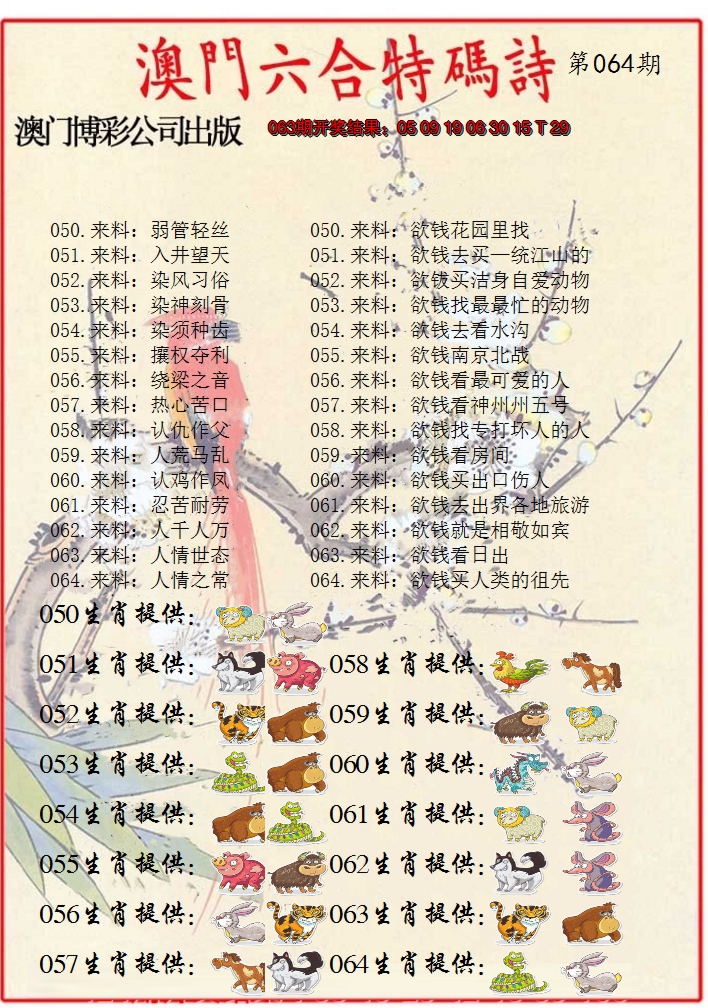 澳門六合特碼詩 第064期
澳门博彩公司出版 063期开奖结果：05 09 19 06 30 15 T 29
050.来料：弱管轻丝 050.来料：欲钱花园里找
051.来料：入井望天 051.来料：欲钱去买一统江山的
052.来料：染风习俗 052.来料：欲钱买洁身自爱动物
053.来料：染神刻骨 053.来料：欲钱找最最忙的动物
054.来料：染须种齿 054.来料：欲钱去看水沟
055.来料：攘权夺利 055.来料：欲钱南京北战
056.来料：绕梁之音 056.来料：欲钱看最可爱的人
057.来料：热心苦口 057.来料：欲钱看神州州五号
058.来料：认仇作父 058.来料：欲钱找专打坏人的人
059.来料：人荒马乱 059.来料：欲钱看房间
060.来料：认鸡作凤 060.来料：欲钱买出口伤人
061.来料：忍苦耐劳 061.来料：欲钱去出界各地旅游
062.来料：人千人万 062.来料：欲钱就是相敬如宾
063.来料：人情世态 063.来料：欲钱看日出
064.来料：人情之常 064.来料：欲钱买人类的祖先
050生肖提供：
051生肖提供： 058生肖提供：
052生肖提供： 059生肖提供：
053生肖提供： 060生肖提供：
054生肖提供： 061生肖提供：
055生肖提供： 062生肖提供：
056生肖提供： 063生肖提供：
057生肖提供： 064生肖提供：